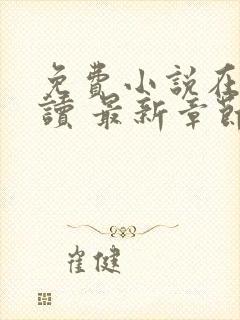 免費小說在
讀 最新章節
崔健